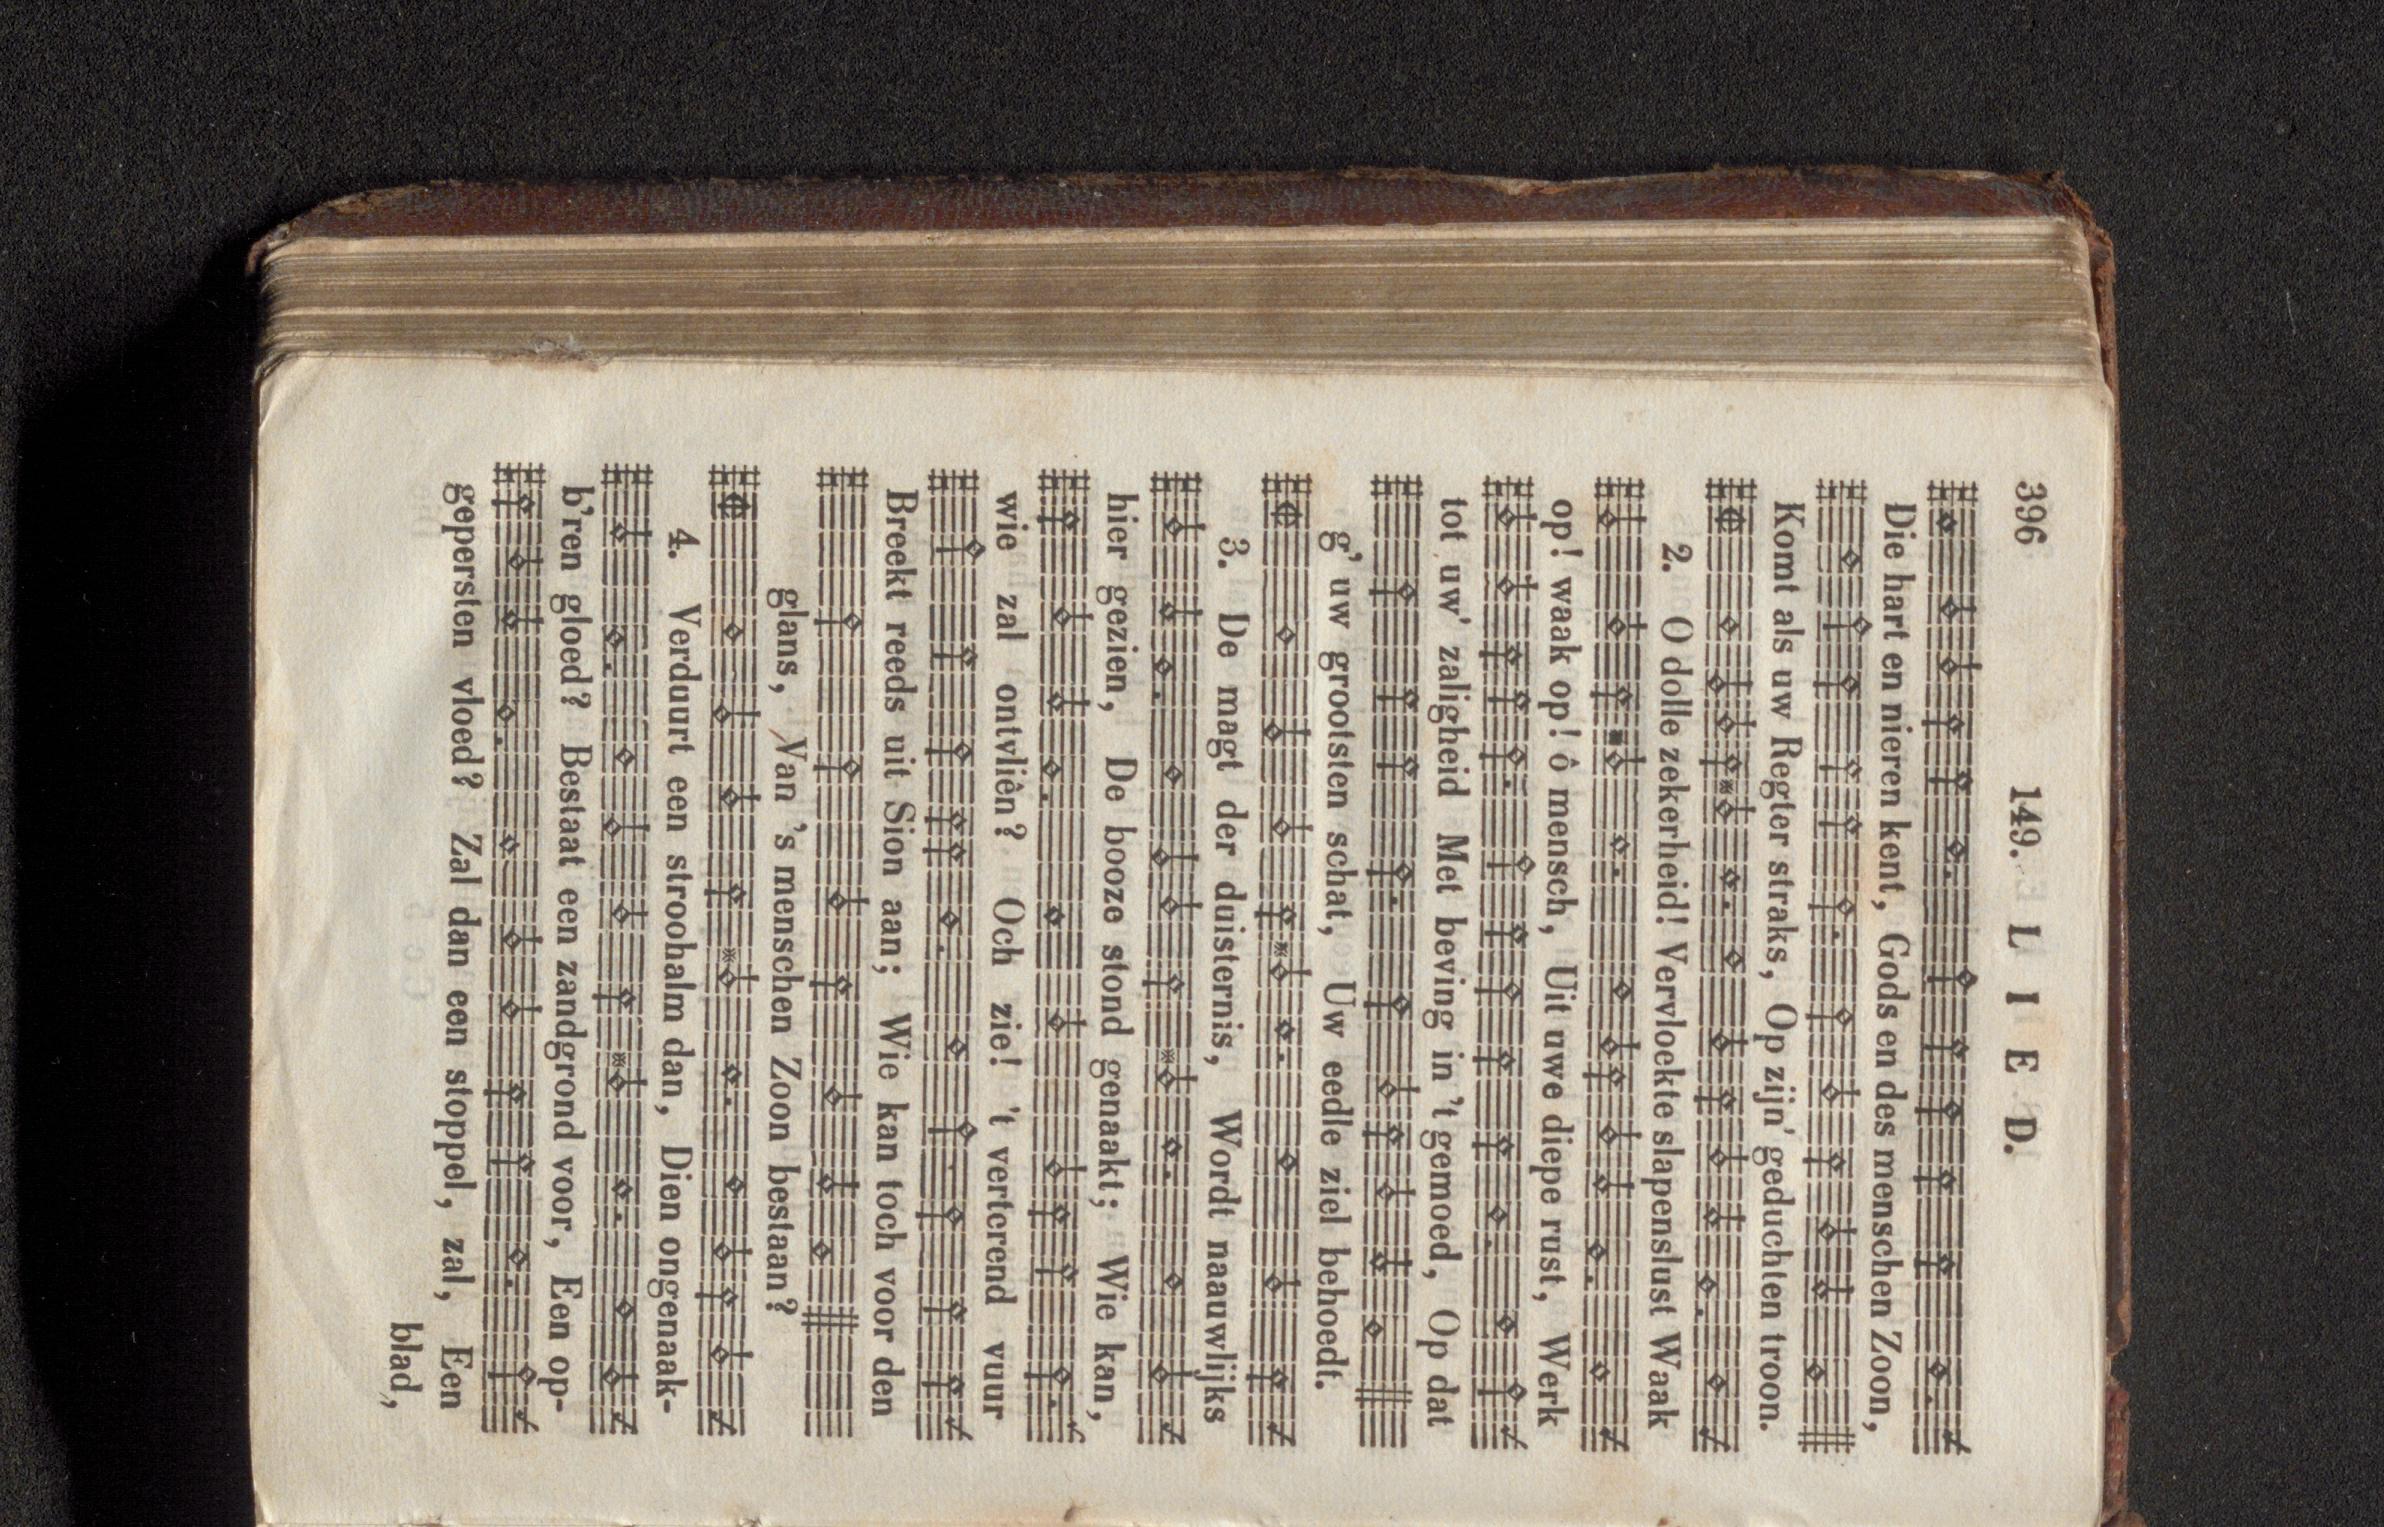 396 149. L I E D.
Die hart en nieren kent, Gods en des menschen Zoon,
Komt als uw Regter straks, Op zijn' geduchten troon.
2. O dolle zekerheid! Vervloekte slapenslust Waak
op! waak op! ô mensch, Uit uwe diepe rust, Werk
tot uw' zaligheid Met beving in 't gemoed, Op dat
g' uw grootsten schat, Uw eedle ziel behoedt.
3. De magt der duisternis, Wordt naauwlijks
hier gezien, De booze stond genaakt; Wie kan,
wie zal ontvliên? Och zie! 't verterend vuur
Breekt reeds uit Sion aan; Wie kan toch voor den
glans, Van 's menschen Zoon bestaan?
4. Verduurt een stroohalm dan, Dien ongenaak-
b'ren gloed? Bestaat een zandgrond voor, Een op-
gepersten vloed? Zal dan een stoppel, zal, Een
blad,